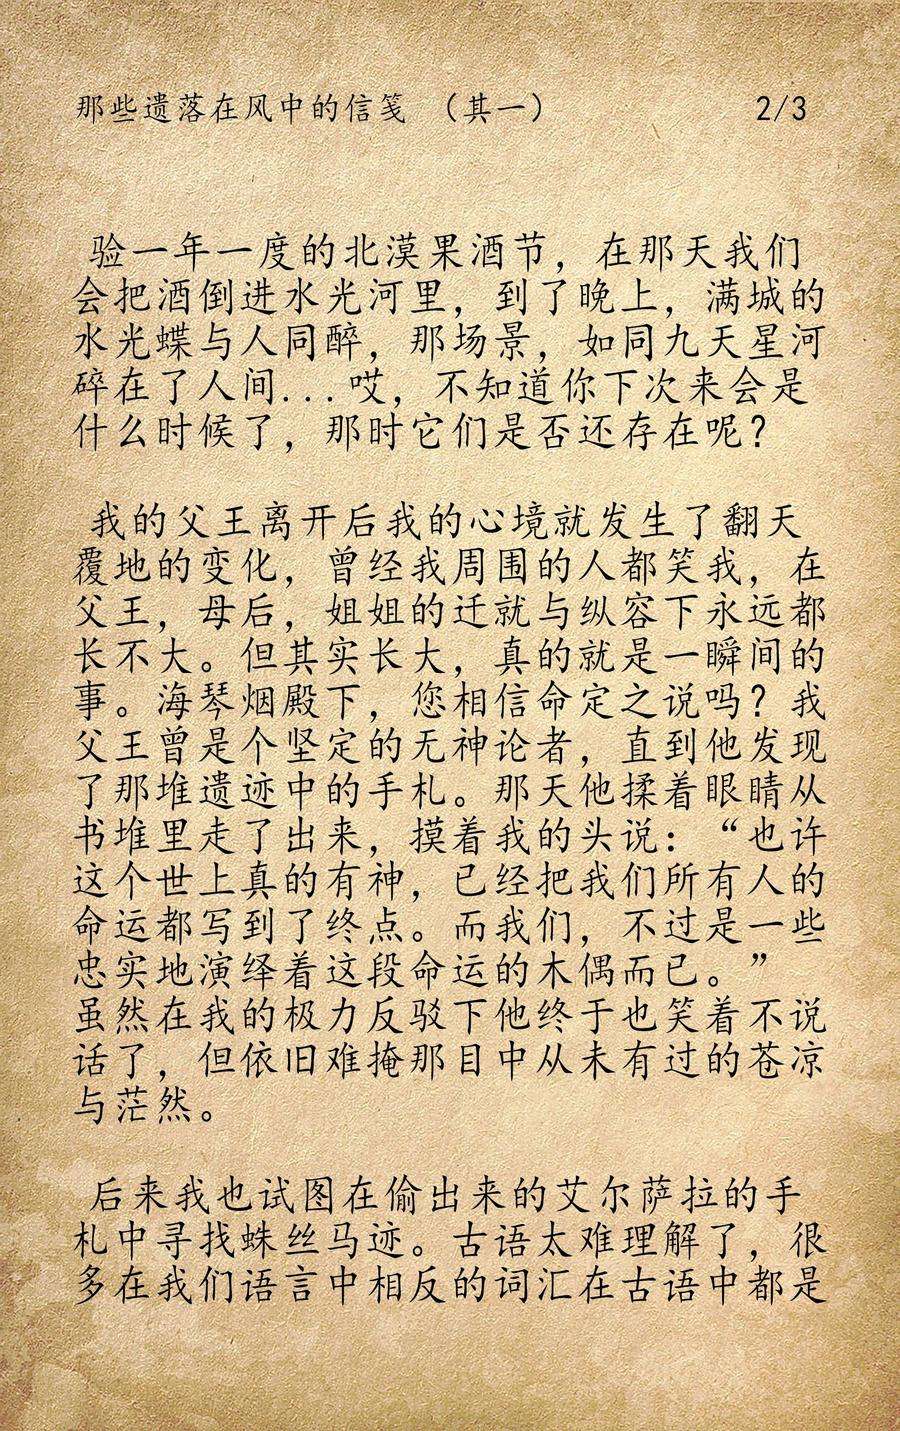 那些遗落在风中的信笺 （其一） 2/3
验一年一度的北漠果酒节，在那天我们
会把酒倒进水光河里，到了晚上，满城的
水光蝶与人同醉，那场景，如同九天星河
碎在了人间...哎，不知道你下次来会是
什么时候了，那时它们是否还存在呢？
我的父王离开后我的心境就发生了翻天
覆地的变化，曾经我周围的人都笑我，在
父王，母后，姐姐的迁就与纵容下永远都
长不大。但其实长大，真的就是一瞬间的
事。海琴烟殿下，您相信命定之说吗？我
父王曾是个坚定的无神论者，直到他发现
了那堆遗迹中的手札。那天他揉着眼睛从
书堆里走了出来，摸着我的头说：“也许
这个世上真的有神，已经把我们所有人的
命运都写到了终点。而我们，不过是一些
忠实地演绎着这段命运的木偶而已。”
虽然在我的极力反驳下他终于也笑着不说
话了，但依旧难掩那目中从未有过的苍凉
与茫然。
后来我也试图在偷出来的艾尔萨拉的手
札中寻找蛛丝马迹。古语太难理解了，很
多在我们语言中相反的词汇在古语中都是